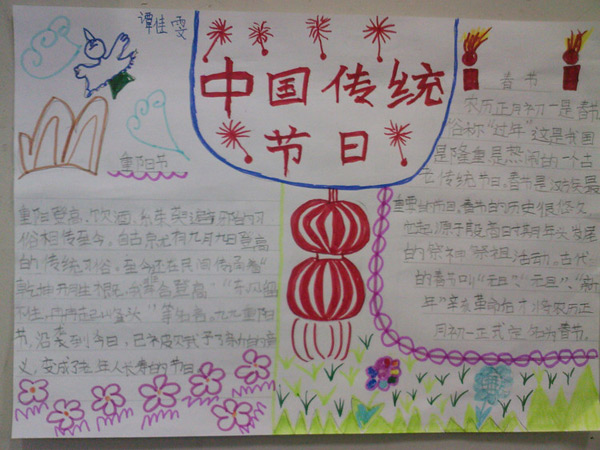 谭佳雯
中国传统
节日
重阳节
重阳登高、饮酒、
俗相传至今。自古就有九月九日登高
的传统习俗。至今还在民间传承着
不住,
节,沿袭到今日,已
义,变成了老年人长寿的节日。
春节
农历正月初一是春节
俗称“过年”这是我国
最隆重最热闹的一个古
老传统节日。春节是汉族最
重要的节日。春节的历史很悠久
它起源于殷商时期年头岁尾
的祭神祭祖活动。古代
的春节叫“元日”、“元旦”、“新
年”辛亥革命后才将农历正
月初一正式定名为春节。